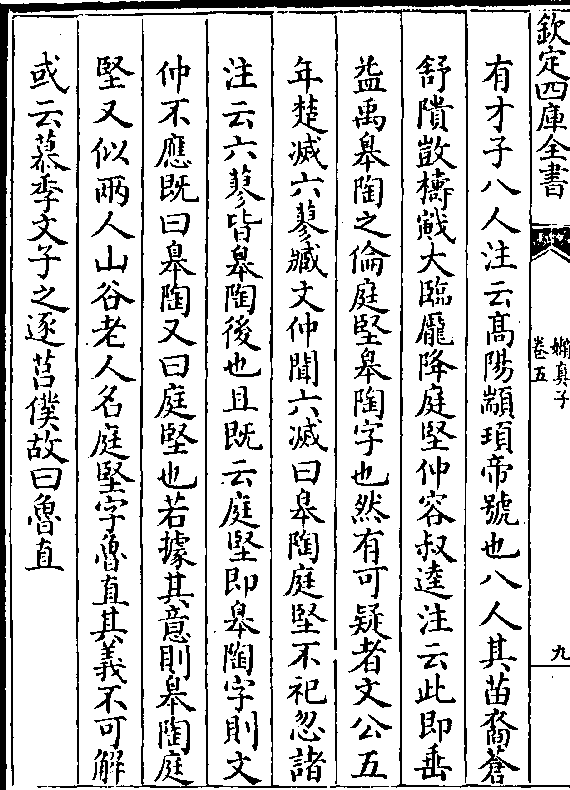 欽定四庫全書
嬾真子
卷五
九
有才子八人注云髙陽顓頊帝號也八人其苗裔蒼
舒隤敳檮戭大臨龎降庭堅仲容叔逹注云此即垂
益禹皋陶之倫庭堅皋陶字也然有可疑者文公五
年楚滅六蓼臧文仲聞六滅曰皋陶庭堅不祀忽諸
注云六蓼皆皋陶後也且既云庭堅即皋陶字則文
仲不應既曰皋陶又曰庭堅也若據其意則皋陶庭
堅又似兩人山谷老人名庭堅字魯直其義不可解
或云慕季文子之逐莒僕故曰魯直